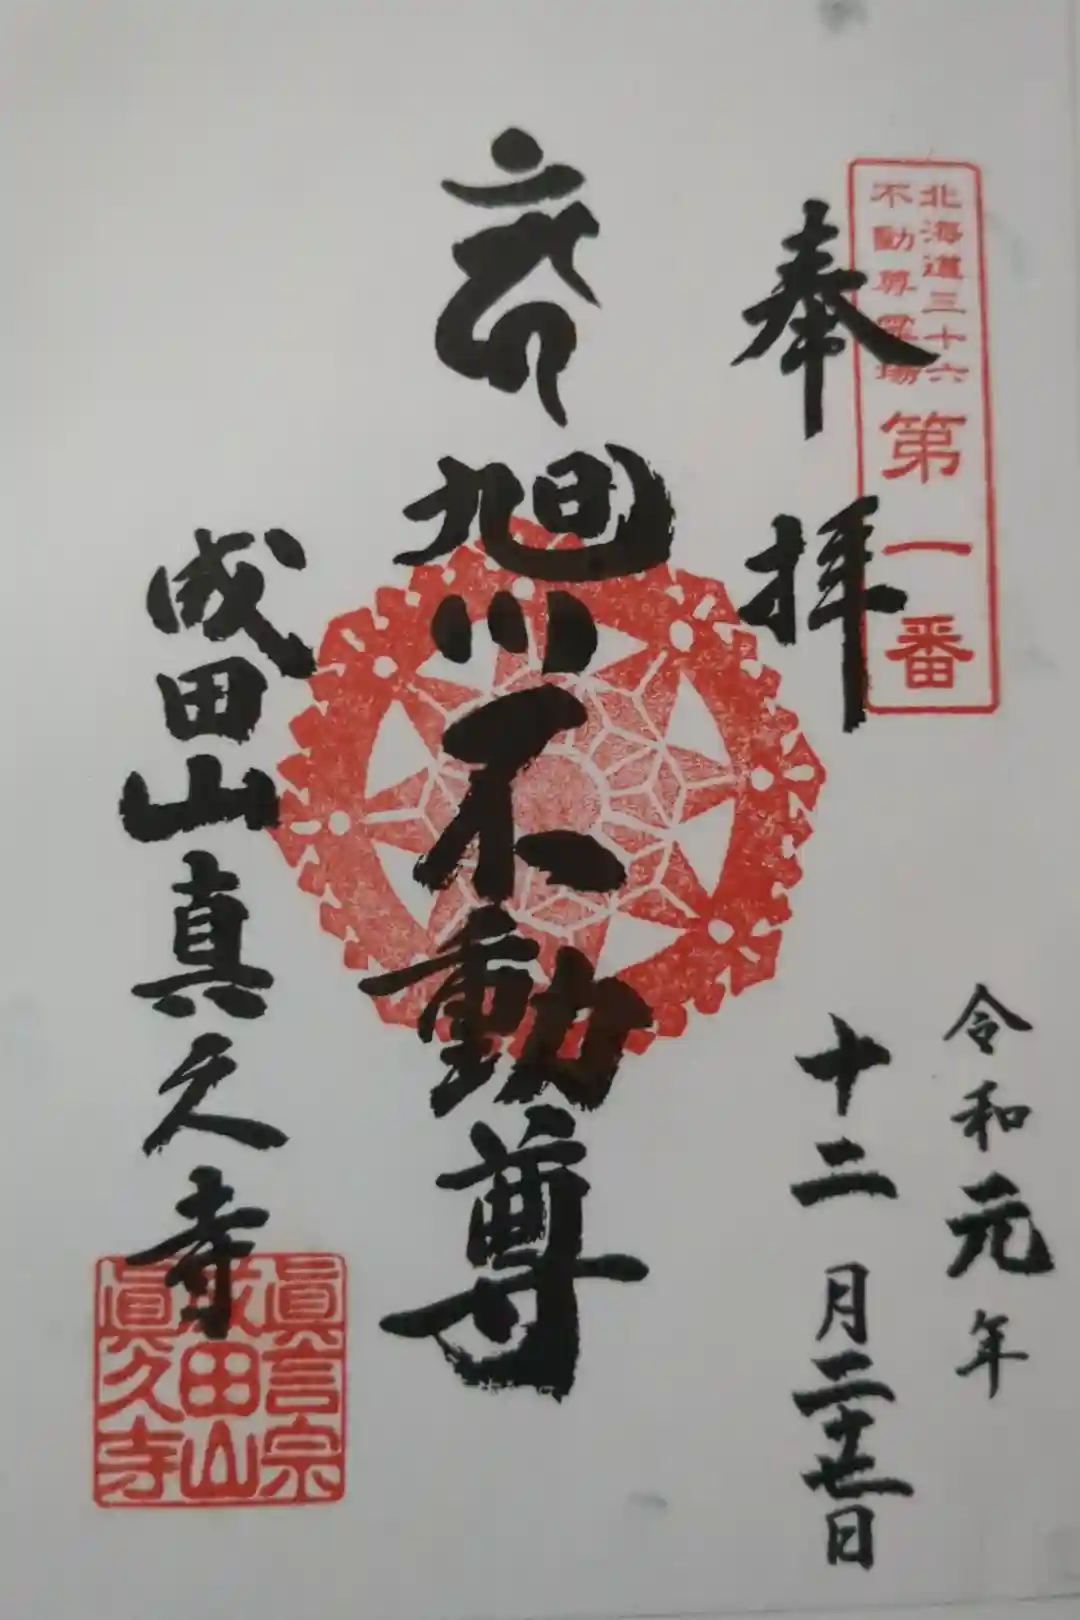 北海道三十六
不動尊霊場
第一番
奉拝
令和元年
十二月二十七日
旭川不動尊
成田山真久寺
眞言宗
成田山
眞久寺